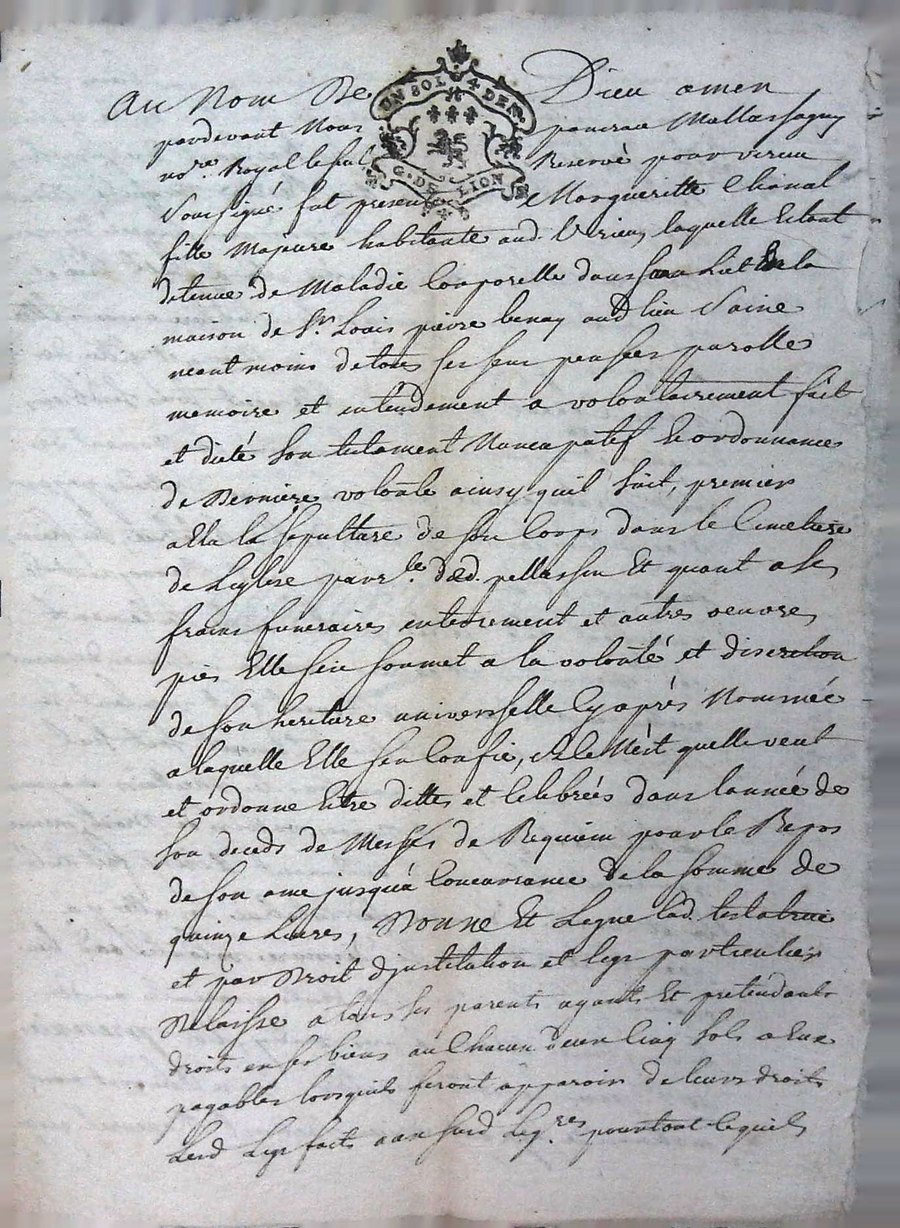 Au Nom De Dieu amen
UN SOL 4 DEN.
G. DE LION
pardevant Nous pancrace Mallassagny
no.re Royal le seul Reservé pour virieu
Soussigné fut presente Morgueritte Chanal
fille Majeure habitante aud. Virieu, laquelle Estant
detenue de Maladie Corporelle dans son Lict de la
maison de Sr. Louis pierre benay aud lieu Saine
neant moins de tous ses sens pensées parolle
memoire et entendement a volontairement fait
et dicté son testament Nuncupatif et ordonnance
de Derniere volonte ainsy quil suit, premier
a Elu la sepulture de son Corps dans le Cimetiere
de Leglise parr.le dud. pellassin Et quant a ses
frais funeraires enterrement et autres oeuvres
pies Elle sen soumet a la volonté et discretion
de son heritiere universelle Cy après Nommée
a laquelle Elle sen Confie, Si le Nest quelle veut
et ordonne Estre dittes et Celebrées dans lannée de
son deceds de Messes de Requiem pour le Repos
de son ame jusqua Concurrance de la somme de
quinze Livres, Donne Et Legue lad. testatrice
et par Droit djnstitution et legs particulier
Delaisse a tous ses parents ayants Et pretendants
droits en ses biens au Chacun deux Cinq sols a Eux
payables lorsquils feront apparoir de leurs droits
Lesd Legs faits aux susd Leg.res pourtout lequels